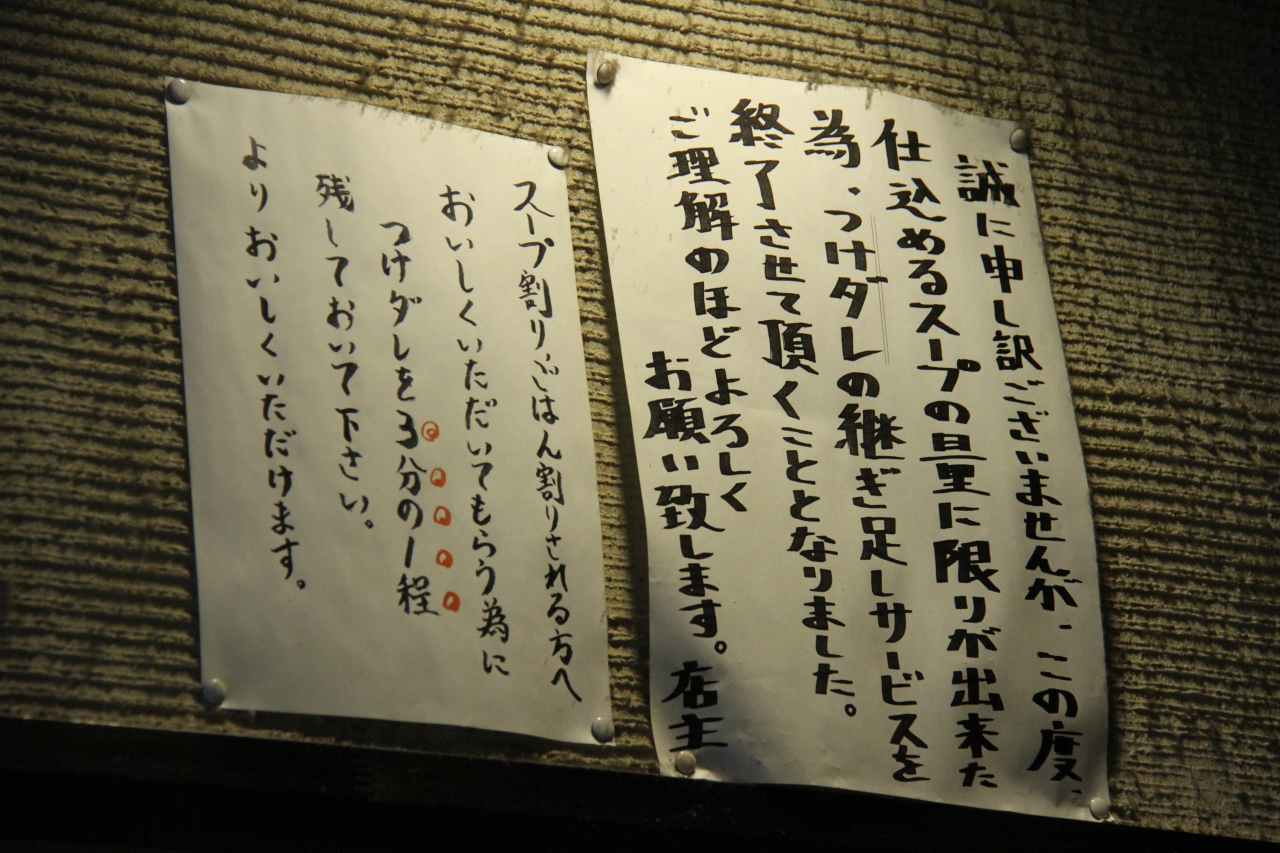 誠に申し訳ございませんが、この度、
仕込めるスープの量に限りが出来た
為、つけダレの継ぎ足しサービスを
終了させて頂くこととなりました。
ご理解のほどよろしく
お願い致します。店主
スープ割り、ごはん割りされる方へ
おいしくいただいてもらう為に
つけダレを3分の1程
残しておいて下さい。
よりおいしくいただけます。